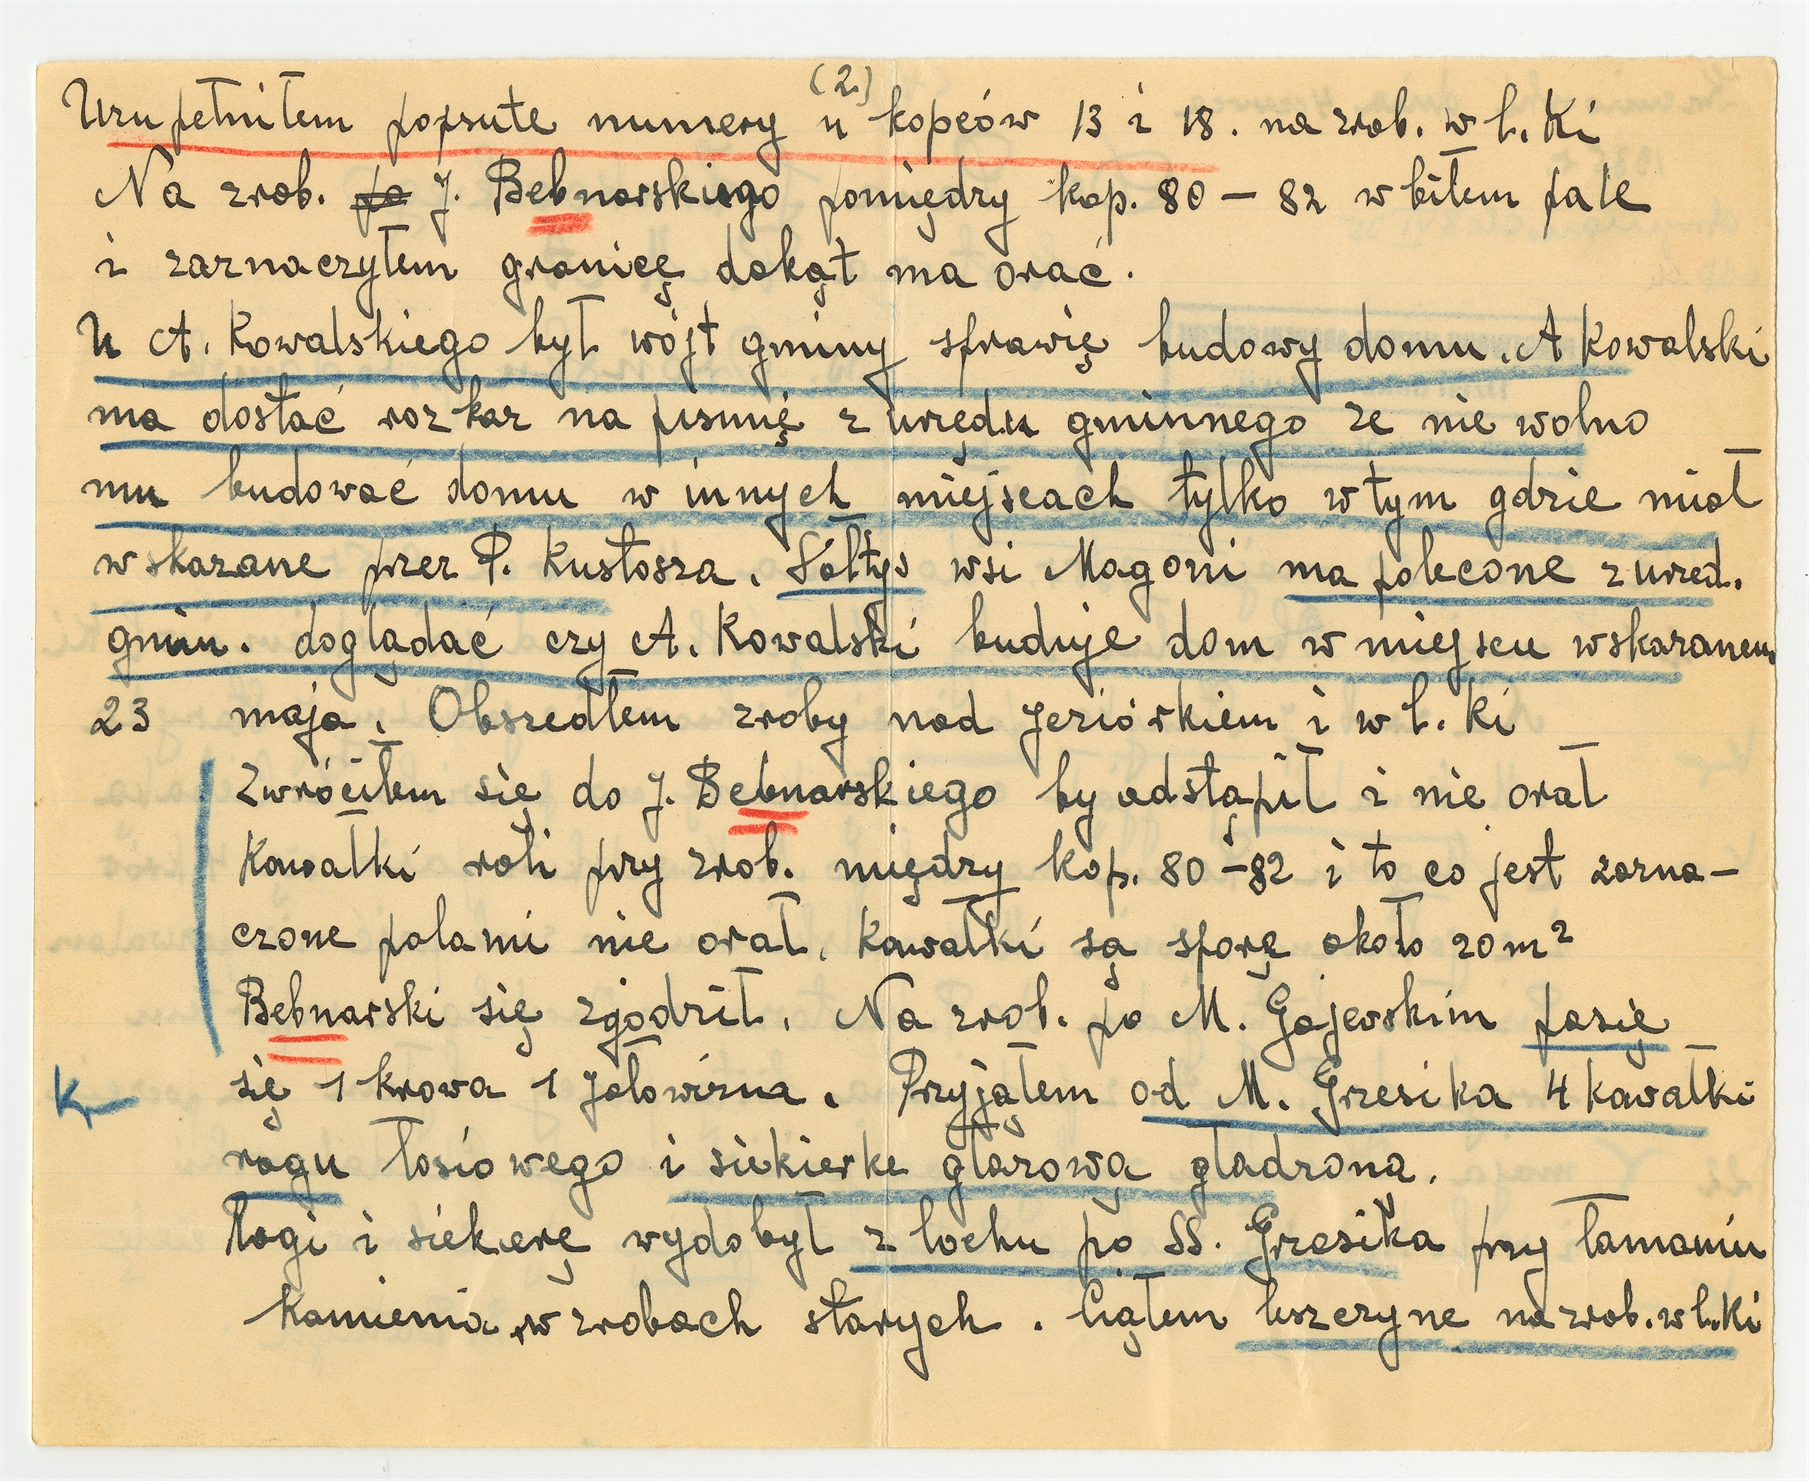 (2)
Uzupełniłem popsute numery u kopców 13 i 18. na zrob. w l. Ki
Na zrob. po J. Bębnarskiego pomiędzy kop. 80 – 82 wbiłem pale
i zaznaczyłem granicę dokąt ma orać.
U A. Kowalskiego był wójt gminy sprawię budowy domu. A Kowalski
ma dostać rozkaz na pismię z urzędu gminnego że nie wolno
mu budować domu w innych miejscach tylko w tym gdzie miał
wskazane przez P. Kustosza. Sołtys wsi Magoni ma polecone z urzed.
gmin. doglądać czy A. Kowalski buduje dom w miejscu wskazanem
23 maja. Obszedłem zroby nad Jeziórkiem i w l. Ki
Zwróciłem się do J. Bebnarskiego by odstąpił i nie orał
Kawałki roli przy zrob. między kop. 80 – 82 i to co jest zazna–
czone palami nie orał. Kawałki są sporę około 20 m²
Bebnarski się zgodził. Na zrob. po M. Gajewskim pasię
K
się 1 krowa 1 jałowizna. Przyjąłem od M. Grzesika 4 kawałki
rogu łosiowego i siekierke głazową gładzoną.
Rogi i siekierę wydobył z lochu po SS. Grzesika przy łamaniu
kamienia w zrobach starych. Ciąłem leszczyne na zrob. w l. Ki